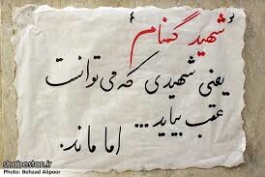 "شهید گمنام"
یعنی شهیدی که می‌توانست
عقب بیاید...
اما ماند.
shabestan.ir
Photo: Behzad Alipoor